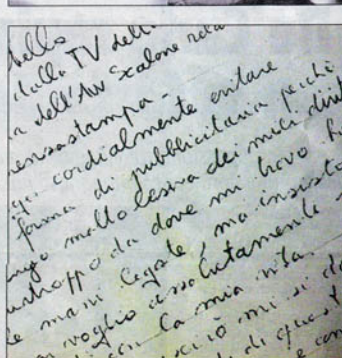 della
dalla TV dell
a dell'Avv Scalone rela
ensastampa-
cordialmente evitare
forma di pubblicitaria perchè
molto lesiva dei miei diri
da dove mi trovo h
le mani legate, ma insisto
voglio assolutamente
la mia vita.
ciò mi si d
di quest